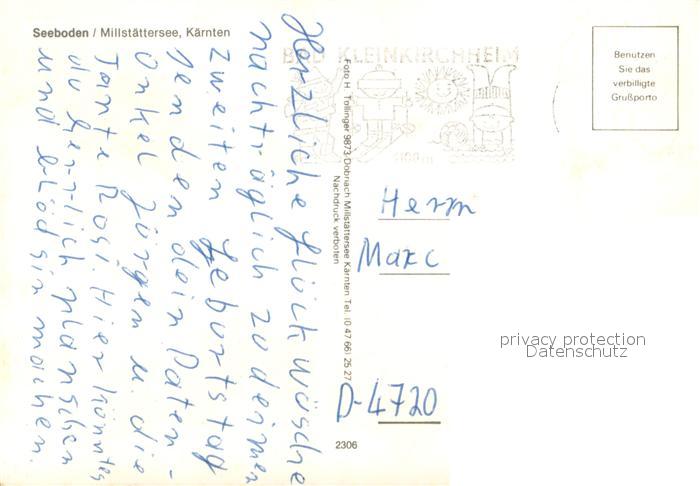 Seeboden / Millstättersee, Kärnten
BAD KLEINKIRCHHEIM
1100m
Benutzen
Sie das
verbilligte
Grußporto
Herzliche Glückwüsche
nachträglich zu deinen
zweiten Geburtstag
senden dein Paten-
Onkel Jürgen u. die
Tante Rosi. Hier könntes
du herrlich planschen
und blödsin machen.
Foto H. Tollinger 9873 Döbriach Millstättersee Kärnten Tel. (0 47 66) 25 27
Nachdruck verboten
Herrn
Marc
D-4720
2306
privacy protection
Datenschutz